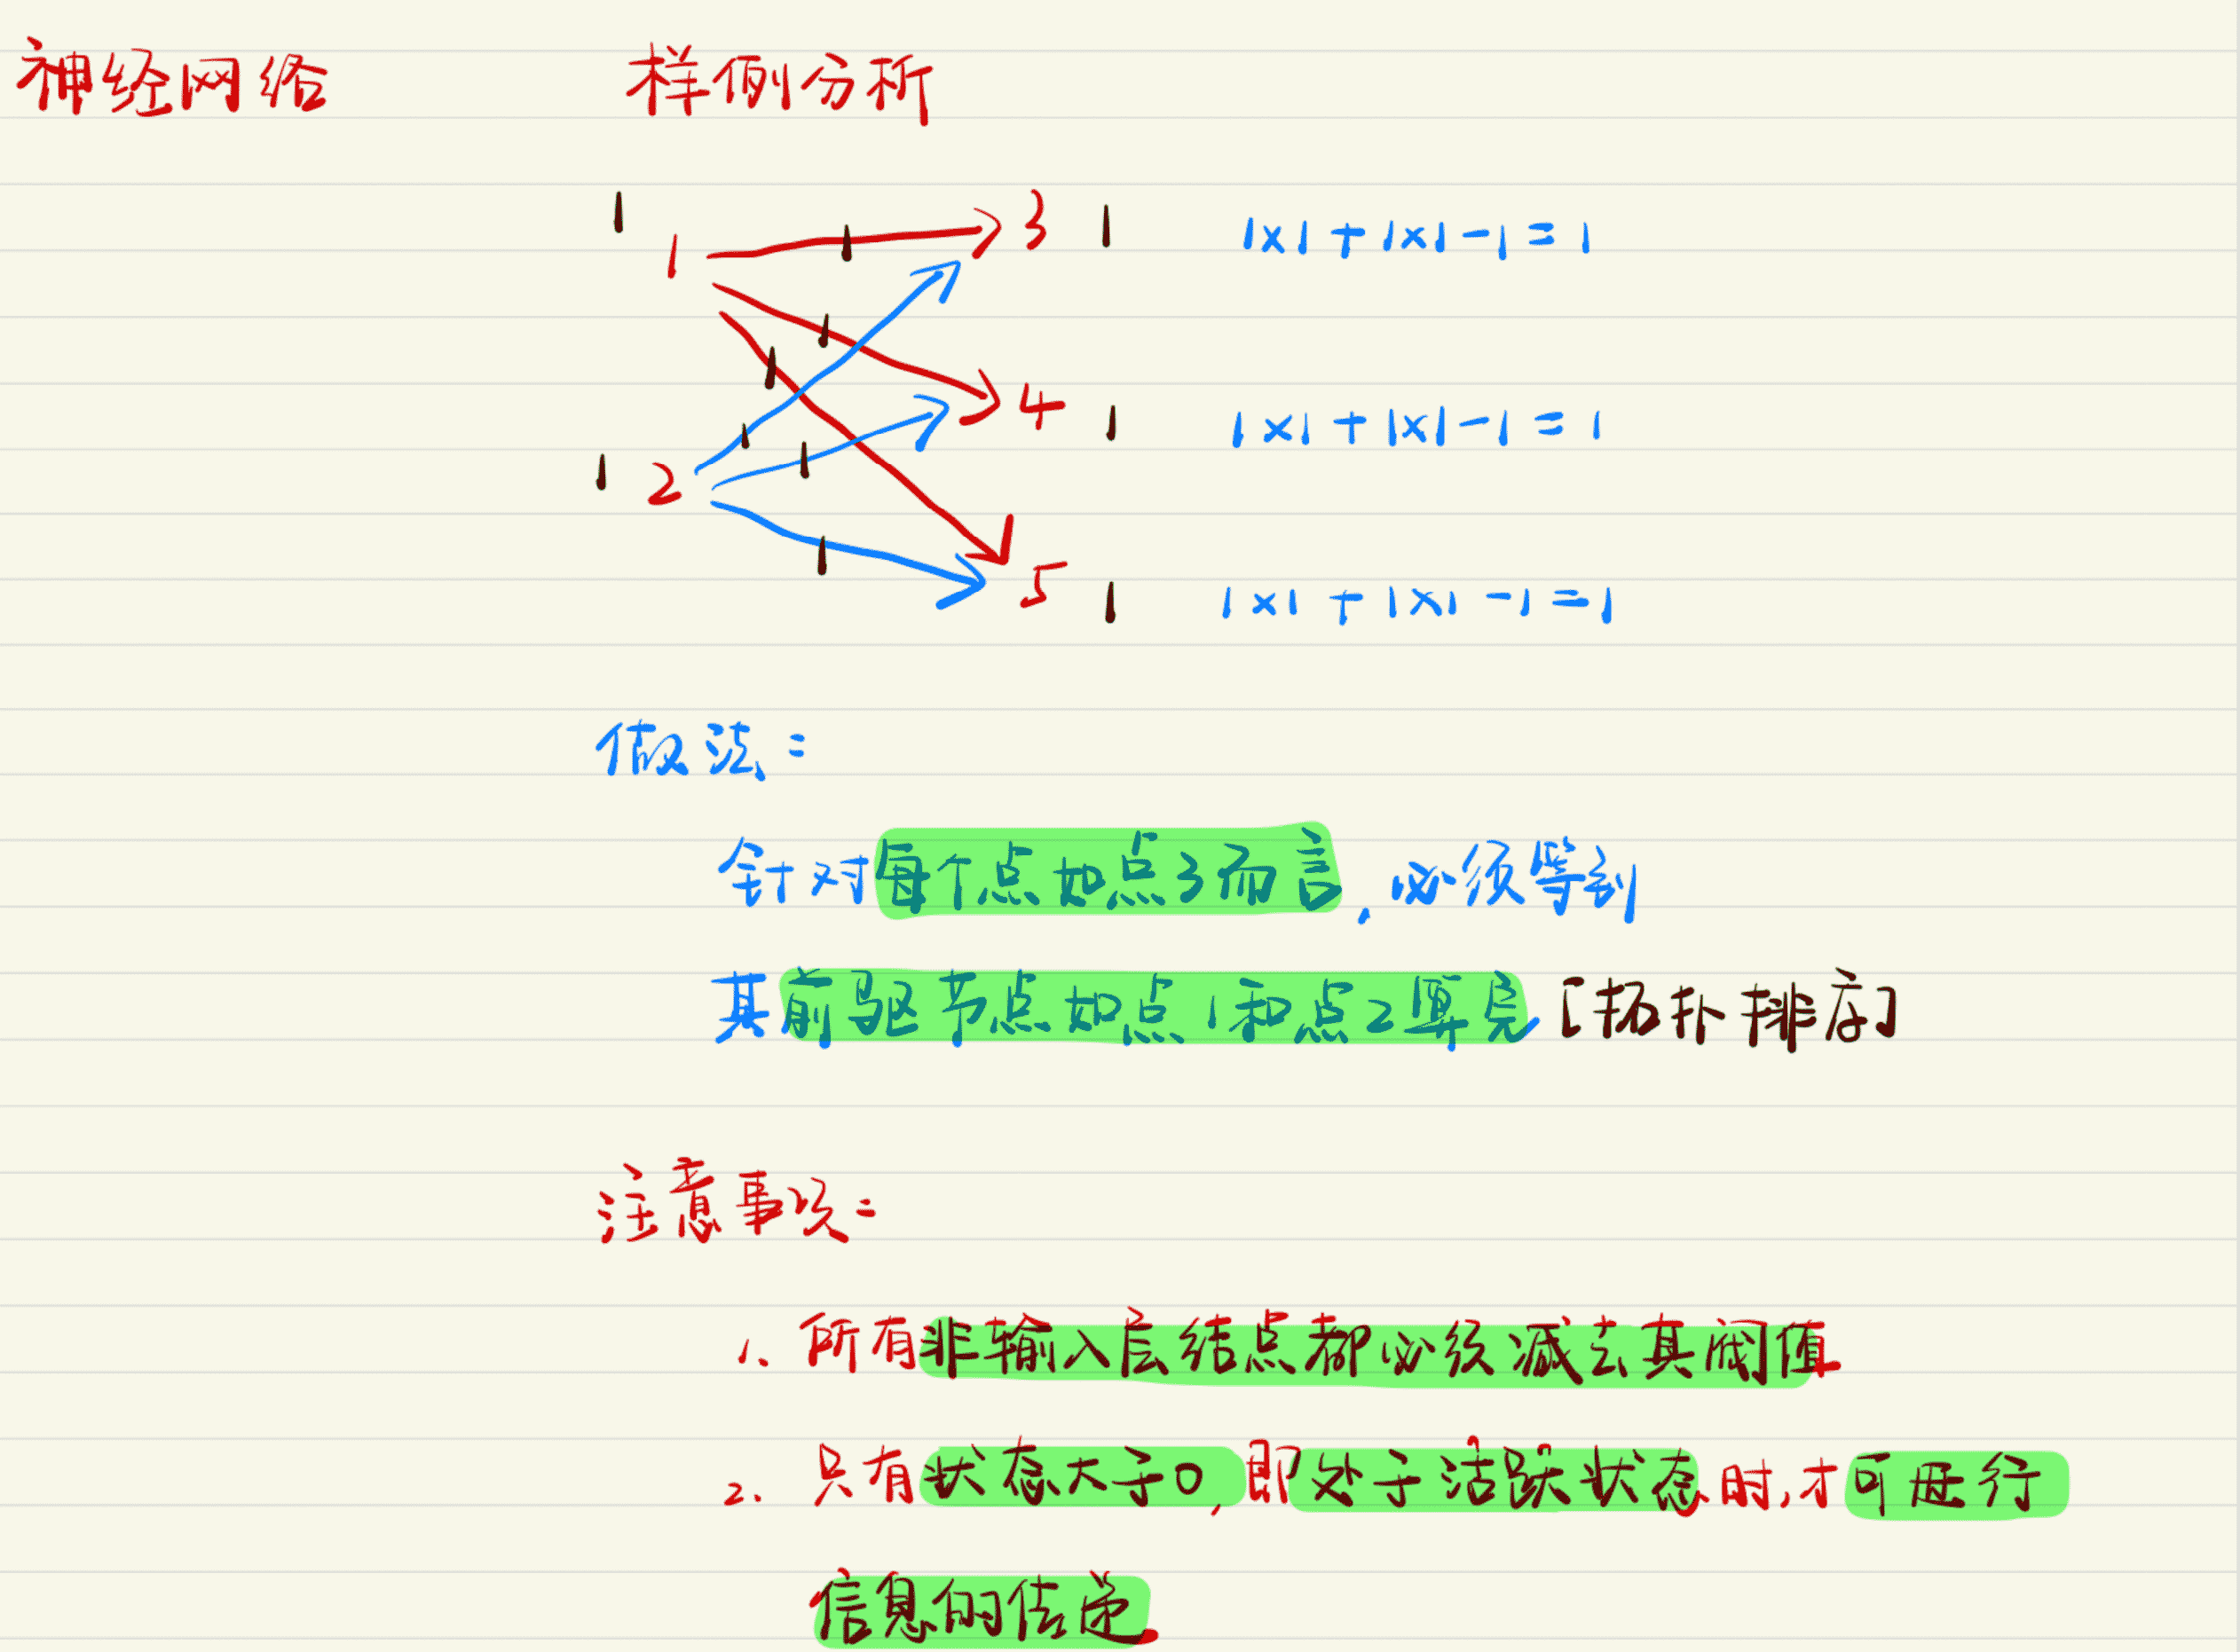 神经网络 样例分析
1 1 1 3 1 1×1+1×1-1=1
1
1
4 1 1×1+1×1-1=1
1
1 2 1
1
5 1 1×1+1×1-1=1
做法:
针对每个点如点3而言,必须等到
其前驱节点如点1和点2算完[拓扑排序]
注意事项:
1、所有非输入层结点都必须减去其阈值
2、只有状态大于0,即处于活跃状态时,才可进行
信息的传递.